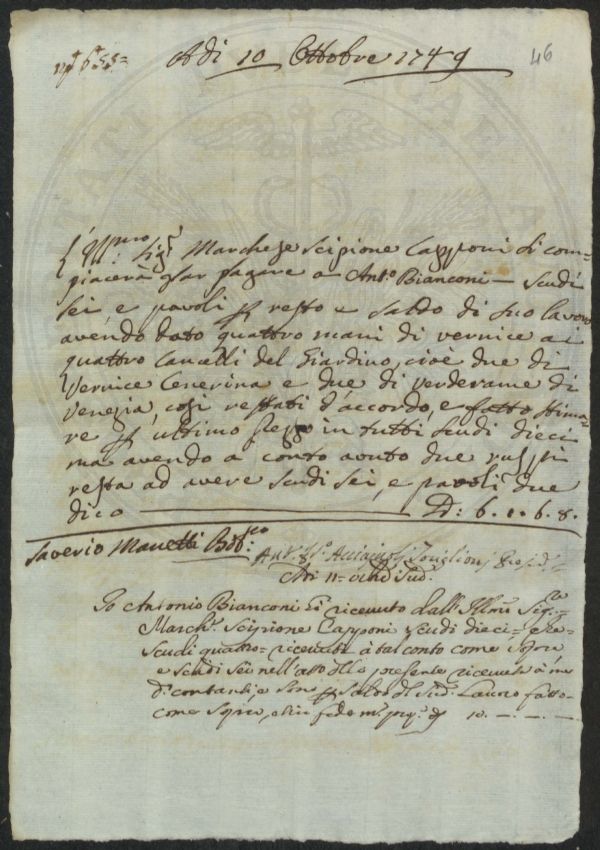 46
Adi 10 Ottobre 1749
L'Ill.mo Sig.r Marchese Scipione Capponi si com=
piacerà far pagare a Ant.o Bianconi — Scudi
sei e pavoli resto e saldo di suo lavoro
avendo dato quattro mani di vernice a i
quattro Cancelli del Giardino, cioè due di
Vernice Cenerina e due di verderame di
Venezia, così restati d'accordo, e fatto stima=
re ultimo in tutti scudi dieci
ma avendo a conto avuto due ruspi
resta ad avere scudi sei, e pavoli due
dico — 6. 8.
Saverio Manetti
Io Antonio Bianconi ò ricevuto dall Ill.mo Sig.re
March.e Scipione Capponi scudi dieci
Scudi quattro ricevuti à tal conto come sopra
e scudi sei nell'atto presente ricevuti à me
contanti e sono saldo Lauoro fatto
come sopra, e in fede m.o pp.a 10. — . — . —